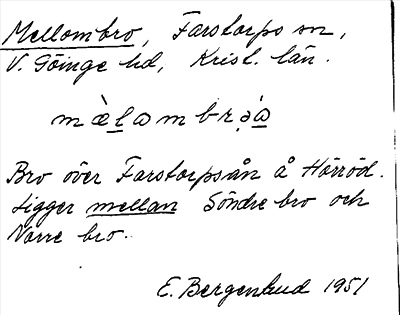 Mellombro, Farstorps sn,
V. Göinge hd, Krist. län.
mὲlambrə̀a
Bro över Farstorpsån å Hörröd.
Ligger mellan Söndre bro och
Norre bro.
E. Bergenlund 1951